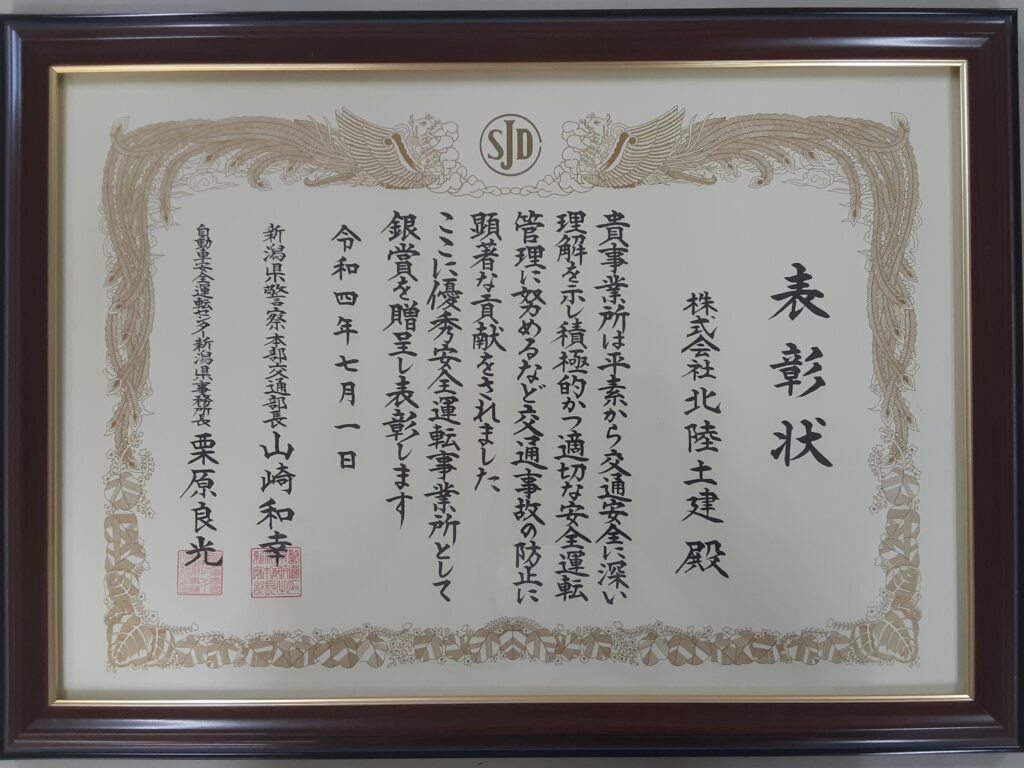 SJD
表彰状
株式会社北陸土建 殿
貴事業所は平素から交通安全に深い
理解を示し積極的かつ適切な安全運転
管理に努めるなど交通事故の防止に
顕著な貢献をされました
ここに優秀安全運転事業所として
銀賞を贈呈し表彰します
令和四年七月一日
新潟県警察本部交通部長 山崎和幸
自動車安全運転センター新潟県事務所長 栗原良光